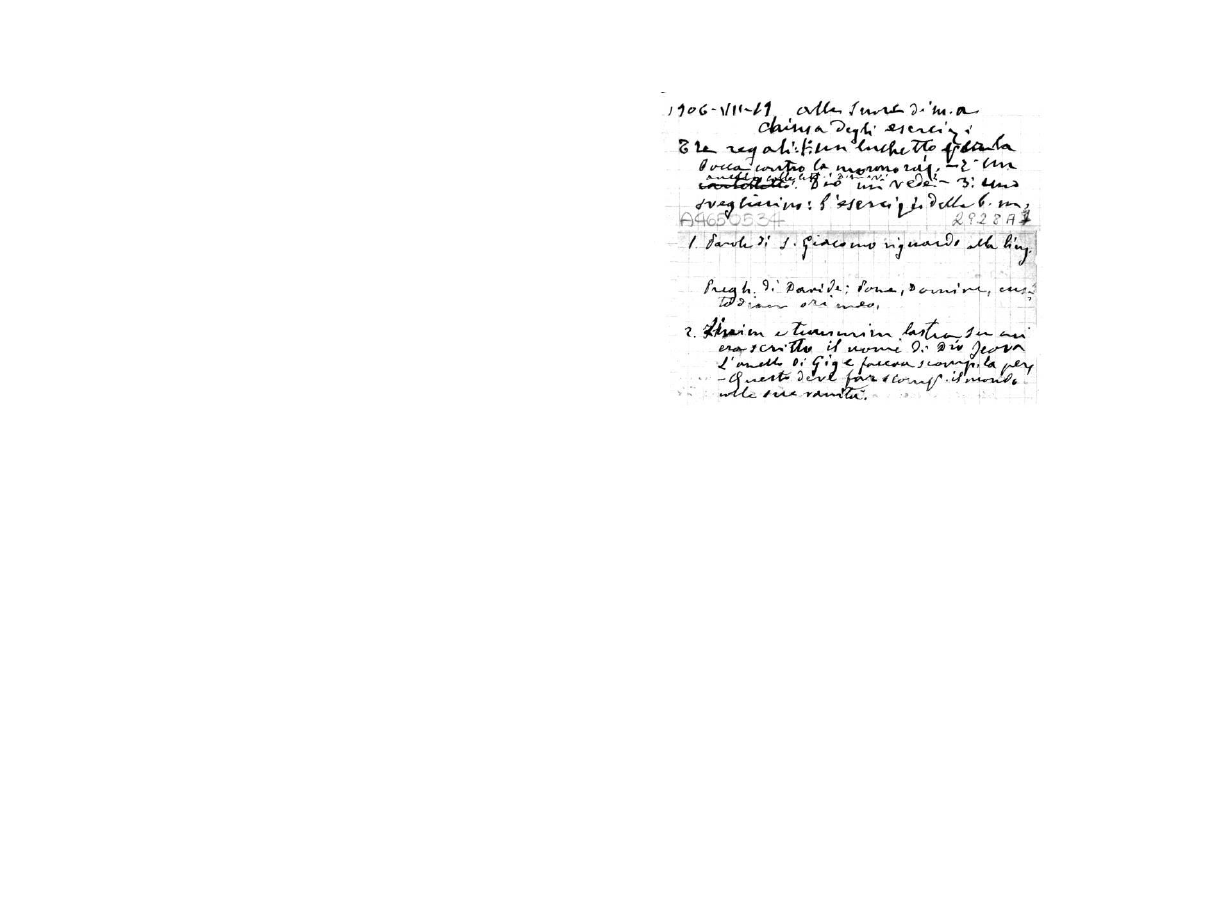 1906-VII-19 alle Suore di m. a.
chiusa degli esercizi
Tre regali: 1: un luchetto per la
bocca contro la mormoraz. - 2: un
anello colle
Dio mi vede - 3: uno
svegliarino: l'esercizio della b. m.
A4650534 2928A7
1. Parole di S. Giacomo riguardo alla ling.
Pregh. di Davide; Pone, Domine, cus-
todiam ori meo.
2. e tummim lastra su cui
era scritto il nome di Dio Jeova
L'anello di Gige faceva scomp. la pers
- Questo deve far scomp. il mondo
colle sue vanità.